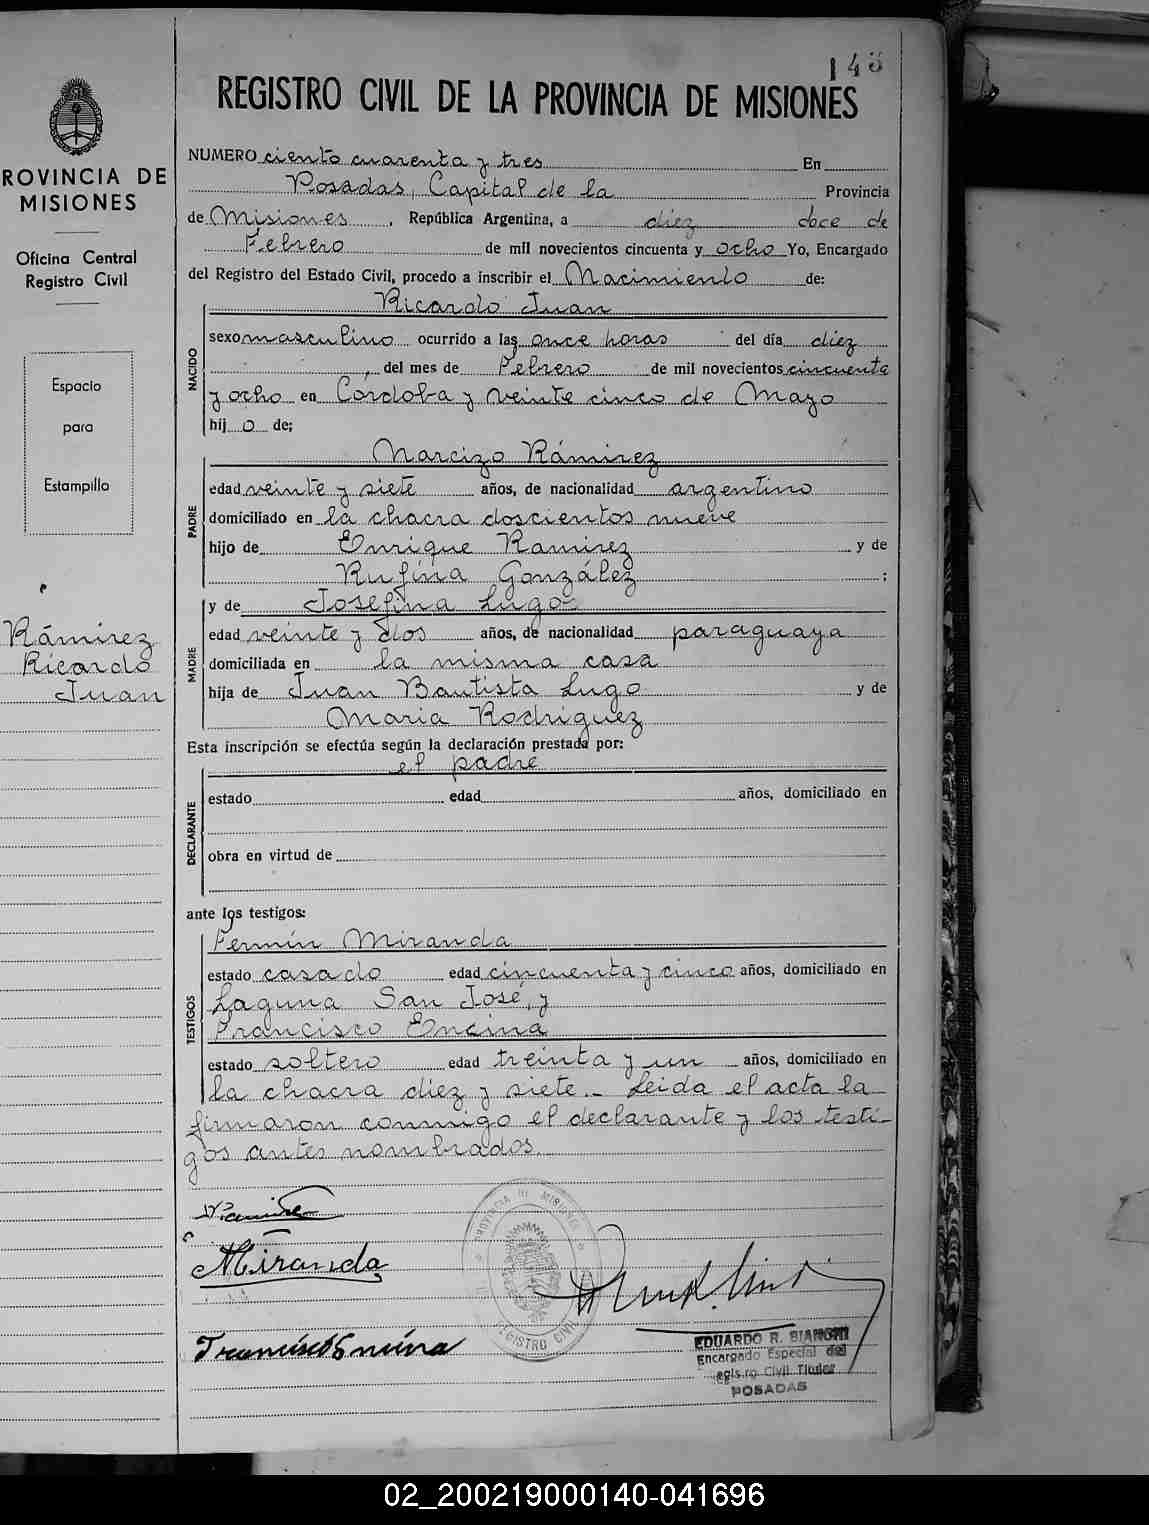 143
REGISTRO CIVIL DE LA PROVINCIA DE MISIONES
ROVINCIA DE
MISIONES
Oficina Central
Registro Civil
Espacio
para
Estampilla
Rámirez
Ricardo
Juan
NUMERO ciento cuarenta y tres En
Posadas, Capital de la Provincia
de Misiones, República Argentina, a diez doce de
Febrero de mil novecientos cincuenta y ocho Yo, Encargado
del Registro del Estado Civil, procedo a inscribir el Nacimiento de:
NACIDO
Ricardo Juan
sexo masculino ocurrido a las once horas del día diez
, del mes de Febrero de mil novecientos cincuenta
y ocho en Cordoba y veinte cinco de Mayo
hij o de;
PADRE
Narcizo Rámirez
edad veinte y siete años, de nacionalidad argentino
domiciliado en la chacra doscientos nueve
hijo de Enrique Ramirez y de
Rufina González ;
MADRE
y de Josefina Lugo
edad veinte y dos años, de nacionalidad paraguaya
domiciliada en la misma casa
hija de Juan Bautista Lugo y de
Maria Rodriguez
Esta inscripción se efectúa según la declaración prestada por:
DECLARANTE
el padre
estado edad años, domiciliado en
obra en virtud de
ante los testigos:
TESTIGOS
Fermín Miranda
estado casado edad cincuenta y cinco años, domiciliado en
Laguna San José, y
Francisco Encina
estado soltero edad treinta y un años, domiciliado en
la chacra diez y siete.- Leida el acta la
firmaron conmigo el declarante y los testi-
gos antes nombrados.
Miranda
PROVINCIA DE MISIONES
REGISTRO CIVIL
EDUARDO R. BIANCHI
Encargado Especial del
Registro Civil Titular
POSADAS
02_200219000140-041696